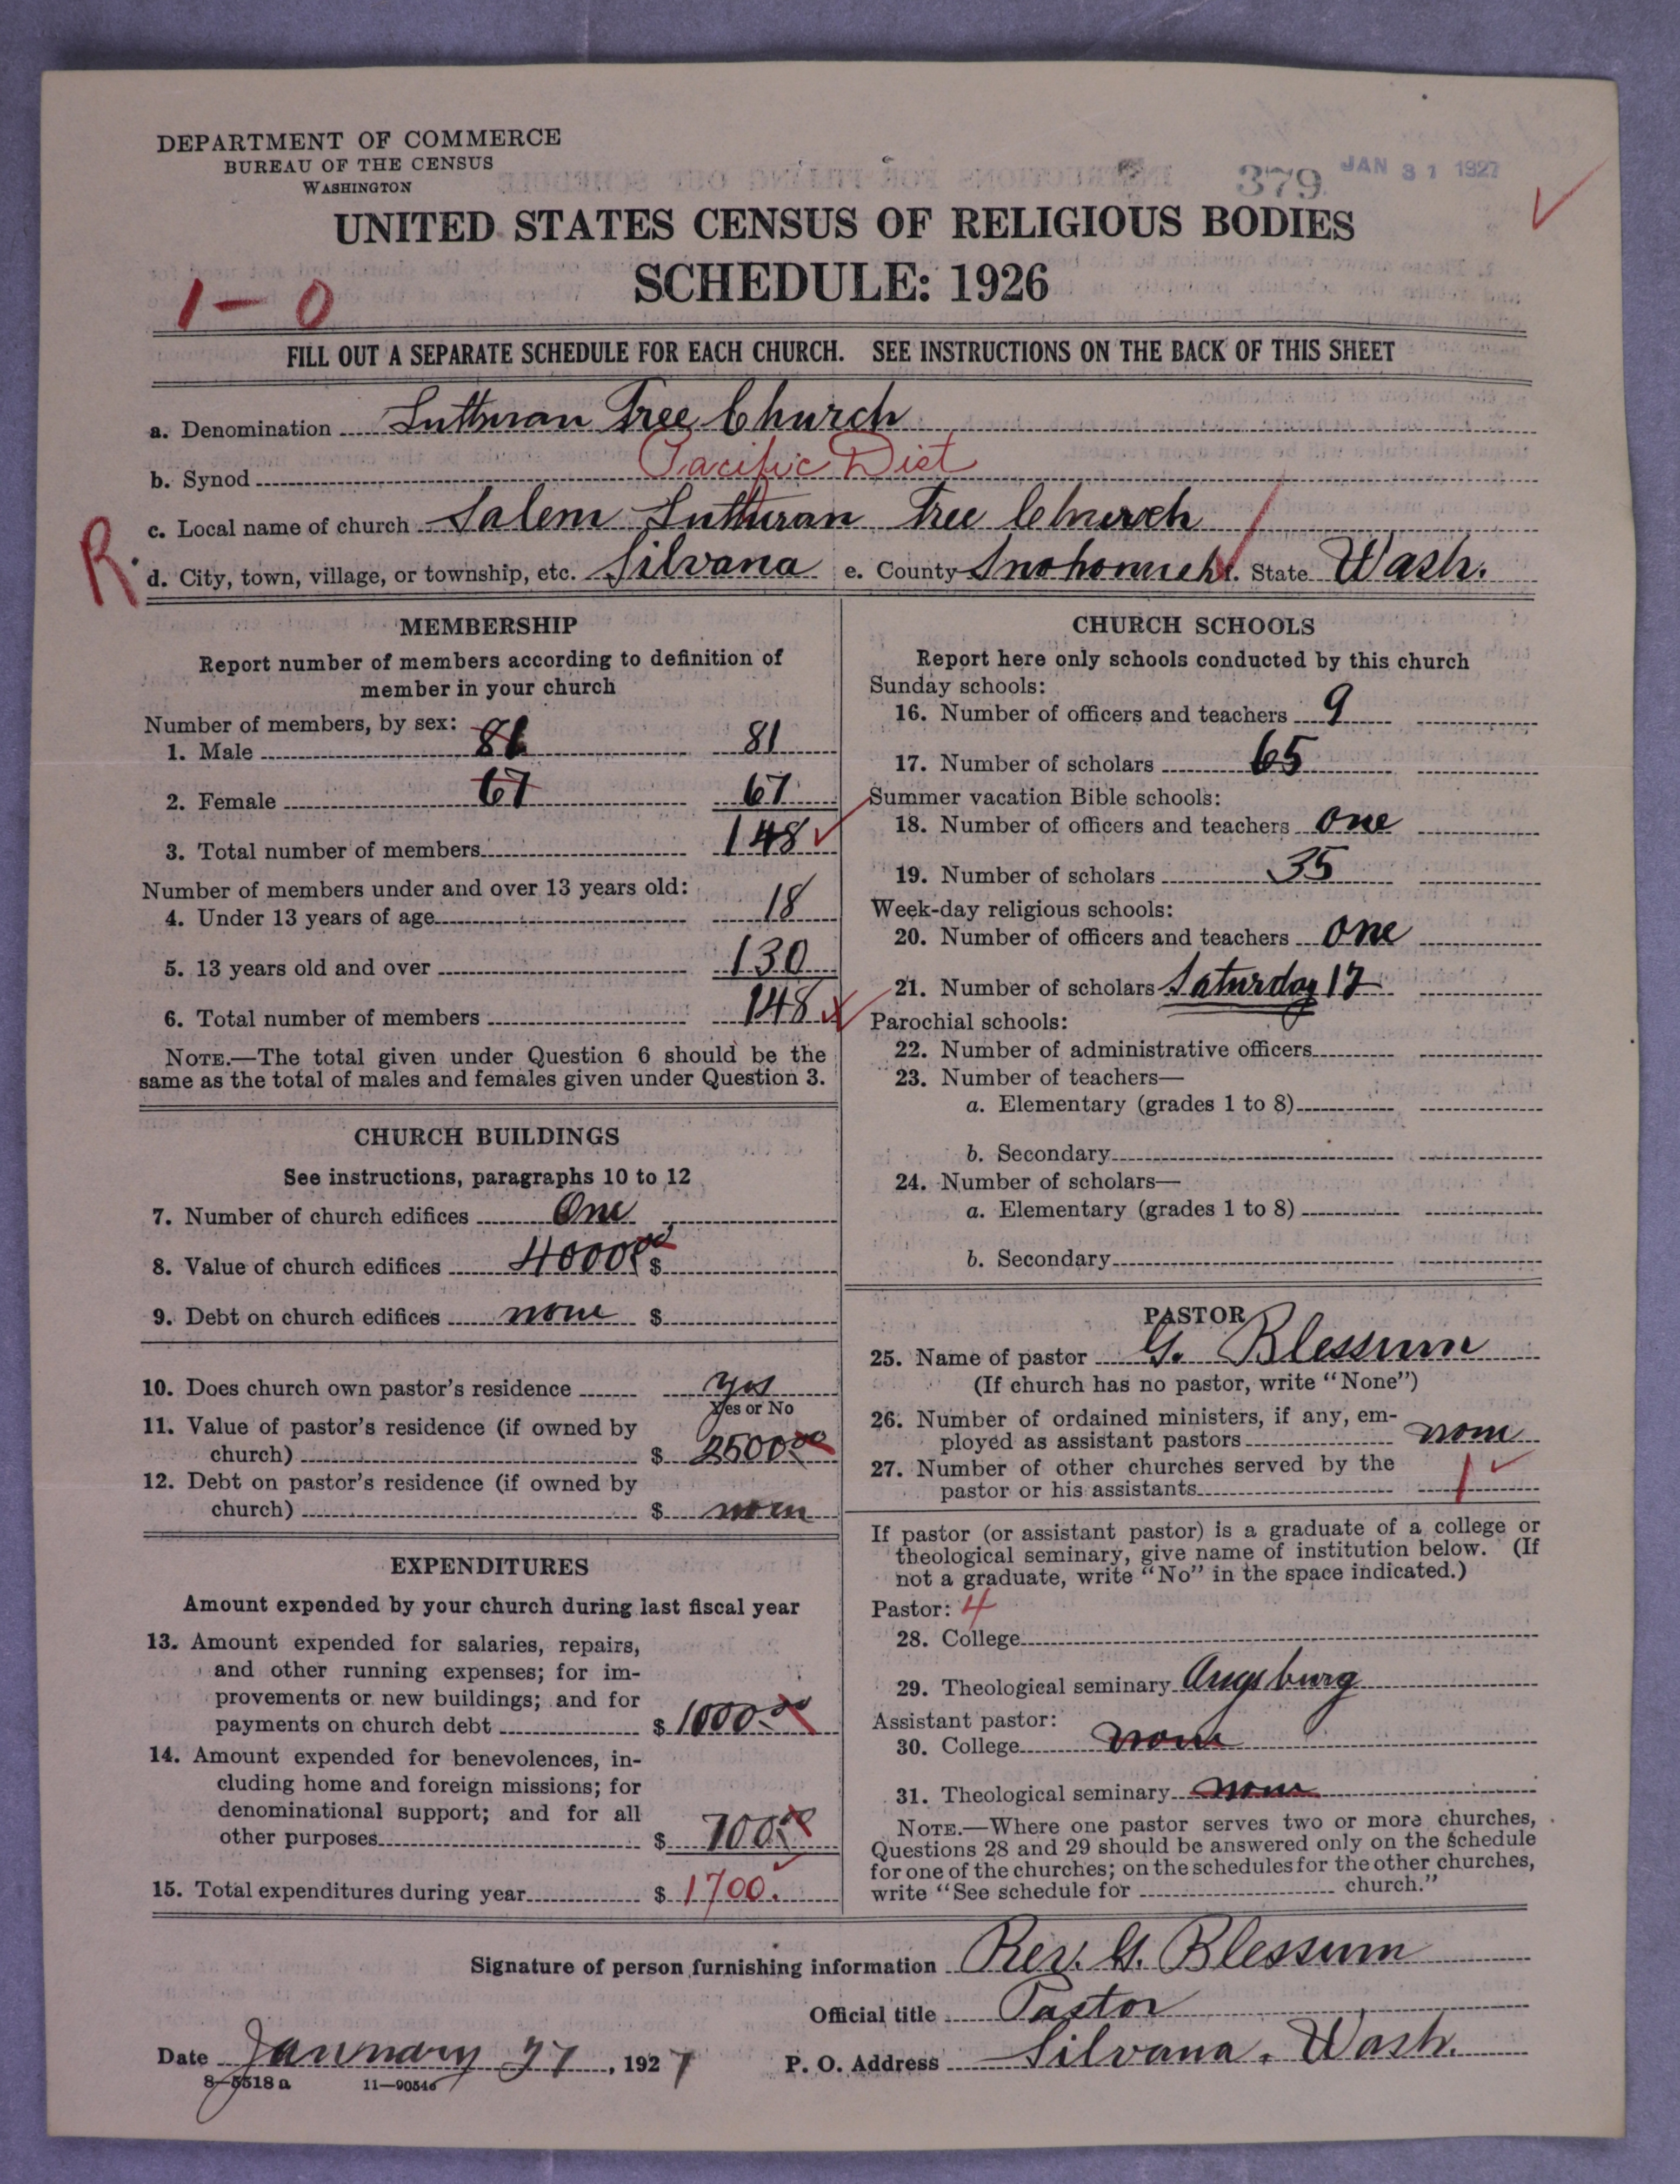 DEPARTMENT OF COMMERCE
BUREAU OF THE CENSUS
WASHINGTON
379 JAN 31 1927
UNITED STATES CENSUS OF RELIGIOUS BODIES
SCHEDULE: 1926
1-0
FILL OUT A SEPARATE SCHEDULE FOR EACH CHURCH. SEE INSTRUCTIONS ON THE BACK OF THIS SHEET
a. Denomination Lutheran Free Church
b. Synod Pacific Dist
c. Local name of church Salem Lutheran Free Church
R. d. City, town, village, or township, etc. Silvana e. County Snohomish. State Wash.
MEMBERSHIP
Report number of members according to definition of
member in your church
Number of members, by sex:
1. Male 81 81
2. Female 67 67
3. Total number of members 148
Number of members under and over 13 years old:
4. Under 13 years of age 18
5. 13 years old and over 130
6. Total number of members 148
NOTE.—The total given under Question 6 should be the
same as the total of males and females given under Question 3.
CHURCH BUILDINGS
See instructions, paragraphs 10 to 12
7. Number of church edifices One
8. Value of church edifices 4000.00 $
9. Debt on church edifices none $
10. Does church own pastor's residence yes
Yes or No
11. Value of pastor's residence (if owned by
church) $ 2500.00
12. Debt on pastor's residence (if owned by
church) $ none
EXPENDITURES
Amount expended by your church during last fiscal year
13. Amount expended for salaries, repairs,
and other running expenses; for im-
provements or new buildings; and for
payments on church debt $ 1000.00
14. Amount expended for benevolences, in-
cluding home and foreign missions; for
denominational support; and for all
other purposes $ 700.00
15. Total expenditures during year $ 1700.
CHURCH SCHOOLS
Report here only schools conducted by this church
Sunday schools:
16. Number of officers and teachers 9
17. Number of scholars 65
Summer vacation Bible schools:
18. Number of officers and teachers one
19. Number of scholars 35
Week-day religious schools:
20. Number of officers and teachers one
21. Number of scholars Saturday 17
Parochial schools:
22. Number of administrative officers
23. Number of teachers—
a. Elementary (grades 1 to 8)
b. Secondary
24. Number of scholars—
a. Elementary (grades 1 to 8)
b. Secondary
PASTOR
25. Name of pastor G. Blessum
(If church has no pastor, write "None")
26. Number of ordained ministers, if any, em-
ployed as assistant pastors none
27. Number of other churches served by the
pastor or his assistants 1
If pastor (or assistant pastor) is a graduate of a college or
theological seminary, give name of institution below. (If
not a graduate, write "No" in the space indicated.)
Pastor: 4
28. College
29. Theological seminary Augsburg
Assistant pastor:
30. College none
31. Theological seminary none
NOTE.—Where one pastor serves two or more churches,
Questions 28 and 29 should be answered only on the schedule
for one of the churches; on the schedules for the other churches,
write "See schedule for church."
Signature of person furnishing information Rev. G. Blessum
Official title Pastor
Date January 27, 1927 P. O. Address Silvana, Wash.
8—5518a 11—90546